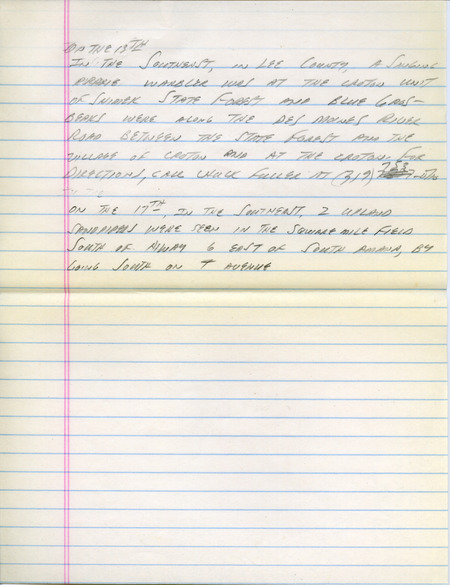 ON THE 18TH
IN THE SOUTHEAST, IN LEE COUNTY, A SINGING
PRARIE WARBLER WAS AT THE CROTON UNIT
OF SHIMEK STATE FOREST AND BLUE GROS-
BEAKS WERE ALONG THE DES MOINES RIVER
ROAD BETWEEN THE STATE FOREST AND THE
VILLAGE OF CROTON AND AT THE CROTON. FOR
DIRECTIONS, CALL CHUCK FULLER AT (319)
ON THE 17TH, IN THE SOUTHEAST, 2 UPLAND
SANDPIPERS WERE SEEN IN THE SQUARE MILE FIELD
SOUTH OF HIWAY 6 EAST OF SOUTH AMANA, BY
GOING SOUTH ON T AVENUE